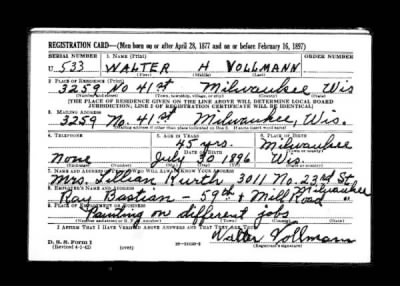 REGISTRATION CARD—(Men born on or after April 28, 1877 and on or before February 16, 1897)
SERIAL NUMBER 1. NAME (Print) ORDER NUMBER
U 533 WALTER H VOLLMANN
(First) (Middle) (Last)
2. PLACE OF RESIDENCE (Print)
3259 No 41st Milwaukee Wis
(Number and street) (Town, township, village, or city) (County) (State)
[THE PLACE OF RESIDENCE GIVEN ON THE LINE ABOVE WILL DETERMINE LOCAL BOARD
JURISDICTION; LINE 2 OF REGISTRATION CERTIFICATE WILL BE IDENTICAL]
3. MAILING ADDRESS
3259 No. 41st Milwaukee, Wis.
[Mailing address if other than place indicated on line 2. If same insert word same]
4. TELEPHONE 5. AGE IN YEARS 6. PLACE OF BIRTH
45 yrs. Milwaukee
DATE OF BIRTH
None July 30 1896 Wis.
7. NAME AND ADDRESS OF PERSON WHO WILL ALWAYS KNOW YOUR ADDRESS
Mrs. Lillian Kurth 3011 No. 23rd St.
Milwaukee
8. EMPLOYER'S NAME AND ADDRESS
Ray Bastian - 59th & Mill Road
9. PLACE OF EMPLOYMENT OR BUSINESS
Painting on different jobs
I AFFIRM THAT I HAVE VERIFIED ABOVE ANSWERS AND THAT THEY ARE TRUE.
Walter Vollmann
D. S. S. Form 1
(Revised 4-1-42) (over) (Registrant's signature)